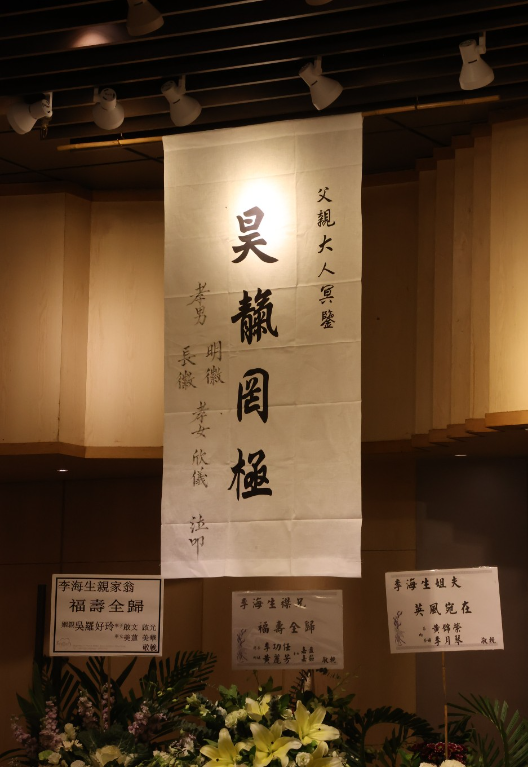 父親大人冥鑒
昊
罔極
孝男
明徽
長徽
孝女欣儀
泣叩
李海生親家翁
福壽全歸
姻親吳羅好玲
啟文 啟元
美蓮 美華
敬輓
李海生襟兄
福壽全歸
李功任
黃麗芳
敬輓
李海生姐夫
英風宛在
弟 黃錦榮
李月琴
敬輓